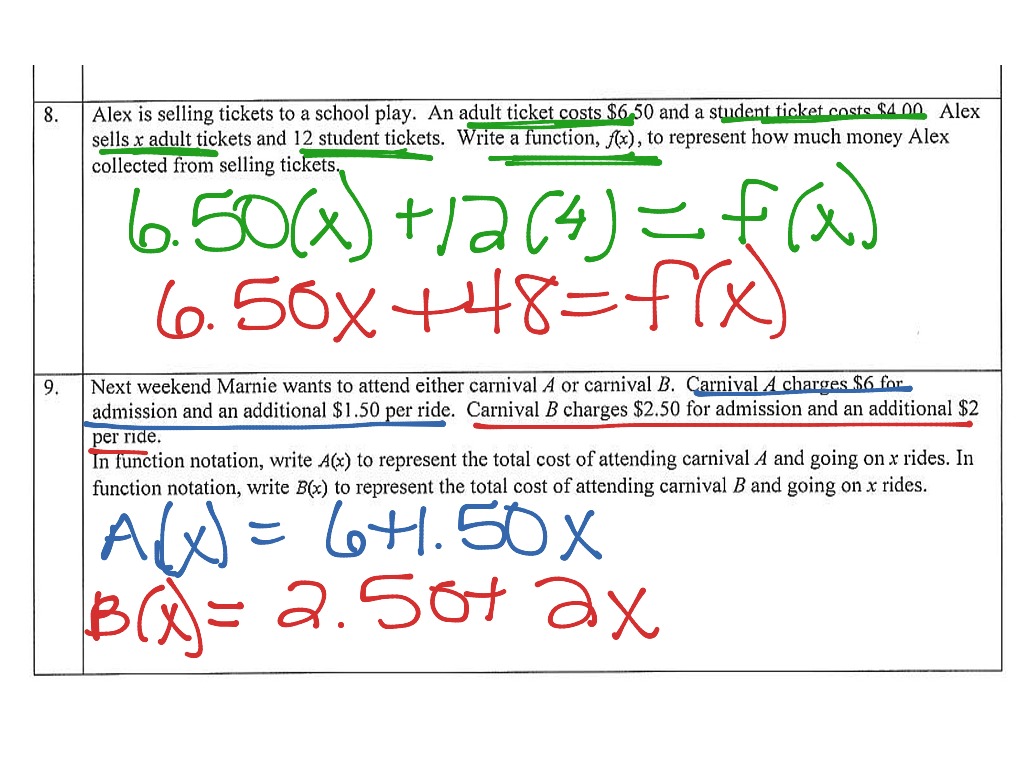 8. Alex is selling tickets to a school play. An adult ticket costs $6.50 and a student ticket costs $4.00. Alex
sells x adult tickets and 12 student tickets. Write a function, f(x), to represent how much money Alex
collected from selling tickets.
6.50(x) + 12(4) = f(x)
6.50x + 48 = f(x)
9. Next weekend Marnie wants to attend either carnival A or carnival B. Carnival A charges $6 for
admission and an additional $1.50 per ride. Carnival B charges $2.50 for admission and an additional $2
per ride.
In function notation, write A(x) to represent the total cost of attending carnival A and going on x rides. In
function notation, write B(x) to represent the total cost of attending carnival B and going on x rides.
A(x) = 6+1.50x
B(x) = 2.50+ 2x